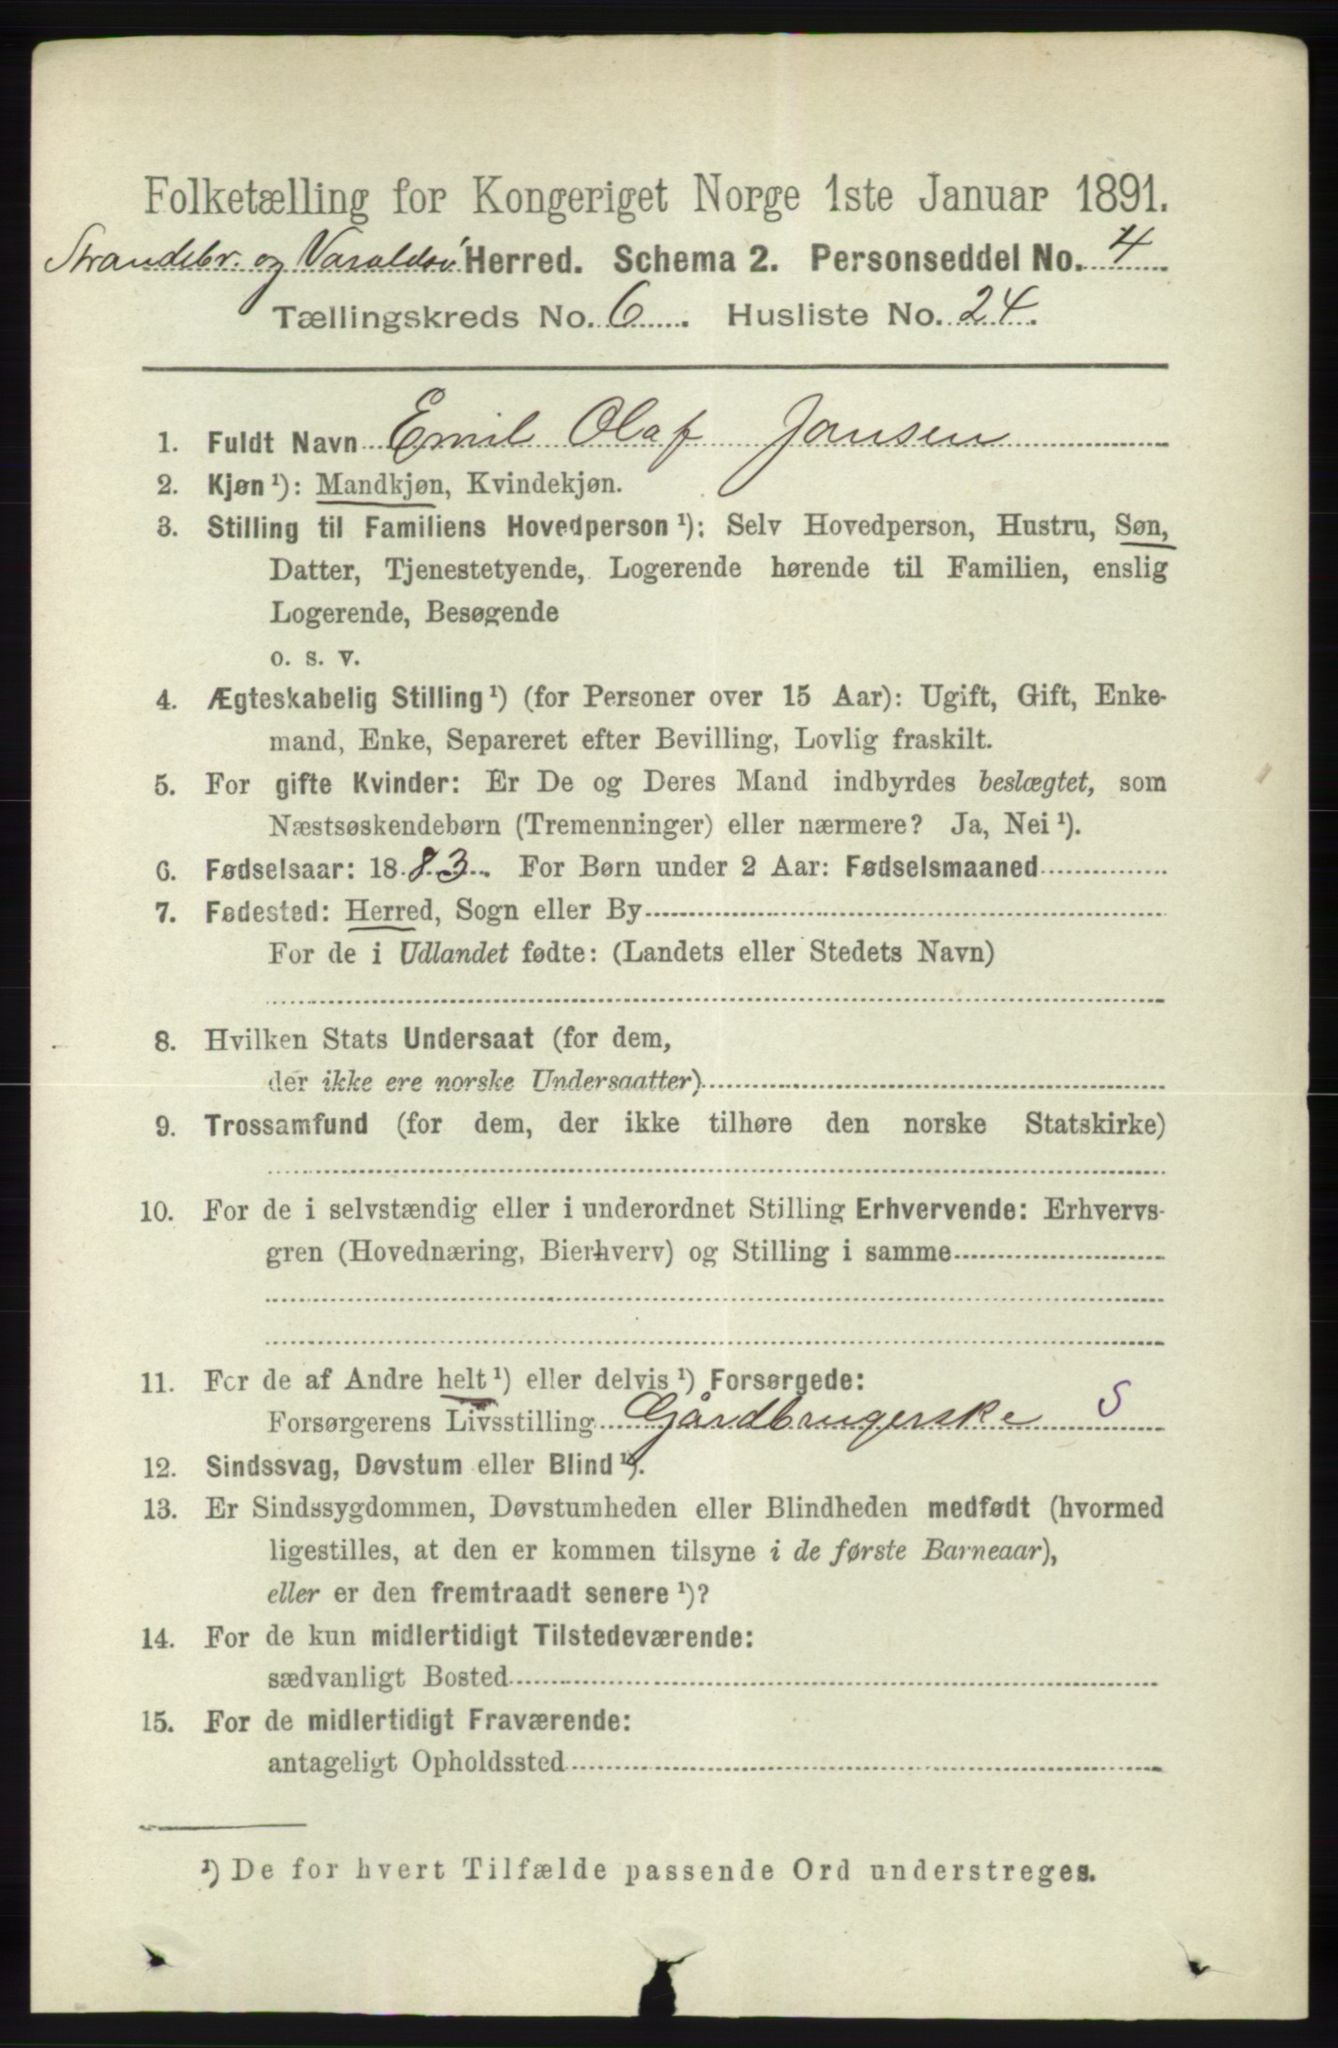 Folketælling for Kongeriget Norge 1ste Januar 1891.
Strandebr. og Varaldsö Herred. Schema 2. Personseddel No. 4
Tællingskreds No. 6. Husliste No. 24.
1. Fuldt Navn Emil Olaf Jansen
2. Kjøn ¹): Mandkjøn, Kvindekjøn.
3. Stilling til Familiens Hovedperson ¹): Selv Hovedperson, Hustru, Søn,
Datter, Tjenestetyende, Logerende hørende til Familien, enslig
Logerende, Besøgende
o. s. v.
4. Ægteskabelig Stilling ¹) (for Personer over 15 Aar): Ugift, Gift, Enke-
mand, Enke, Separeret efter Bevilling, Lovlig fraskilt.
5. For gifte Kvinder: Er De og Deres Mand indbyrdes beslægtet, som
Næstsøskendebørn (Tremenninger) eller nærmere? Ja, Nei ¹).
6. Fødselsaar: 1883. For Børn under 2 Aar: Fødselsmaaned
7. Fødested: Herred, Sogn eller By
For de i Udlandet fødte: (Landets eller Stedets Navn)
8. Hvilken Stats Undersaat (for dem,
der ikke ere norske Undersaatter)
9. Trossamfund (for dem, der ikke tilhøre den norske Statskirke)
10. For de i selvstændig eller i underordnet Stilling Erhvervende: Erhvervs-
gren (Hovednæring, Bierhverv) og Stilling i samme
11. For de af Andre helt ¹) eller delvis ¹) Forsørgede:
Forsørgerens Livsstilling Gårdbrugerske S
12. Sindssvag, Døvstum eller Blind ¹).
13. Er Sindssygdommen, Døvstumheden eller Blindheden medfødt (hvormed
ligestilles, at den er kommen tilsyne i de første Barneaar),
eller er den fremtraadt senere ¹)?
14. For de kun midlertidigt Tilstedeværende:
sædvanligt Bosted
15. For de midlertidigt Fraværende:
antageligt Opholdssted
¹) De for hvert Tilfælde passende Ord understreges.